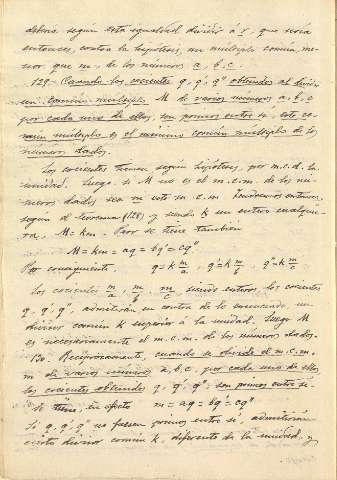 debería según esta igualdad dividir á r, que sería
entonces, contra la hipótesis, un múltiplo común, me-
nor que m, de los números a, b, c.
129. Cuando los cocientes q, q', q'' obtenidos al dividir
un común múltiplo M de varios números, a, b, c
por cada uno de ellos, son primos entre sí, este co-
mún múltiplo es el mínimo común múltiplo de los
números dados.
Los cocientes tienen según hipótesis, por m.c.d. la
unidad. Luego si M no es el m.c.m. de los nú-
meros dados sea m este m.c.m. tendremos entonces,
según el teorema (128) y siendo k un entero cualquie-
ra, M = km. Por se tiene también
M = km = aq = bq' = cq''
Por consiguiente, q = k m/a, q' = k m/b, q'' = k m/c
Los cocientes m/a, m/b, m/c siendo enteros, los cocientes
q, q', q'', admitirían en contra de lo enunciado un
divisor común k superior á la unidad. Luego M
es necesariamente el m.c.m. de los números dados.
130. Recíprocamente, cuando se divide el m.c.m.
m de varios números a, b, c, por cada uno de ellos
los cocientes obtenidos q, q', q'', son primos entre sí.
Se tiene, en efecto m = aq = bq' = cq''
Si q, q', q'' no fuesen primos entre sí, admitirían
cierto divisor común k, diferente de la unidad, y